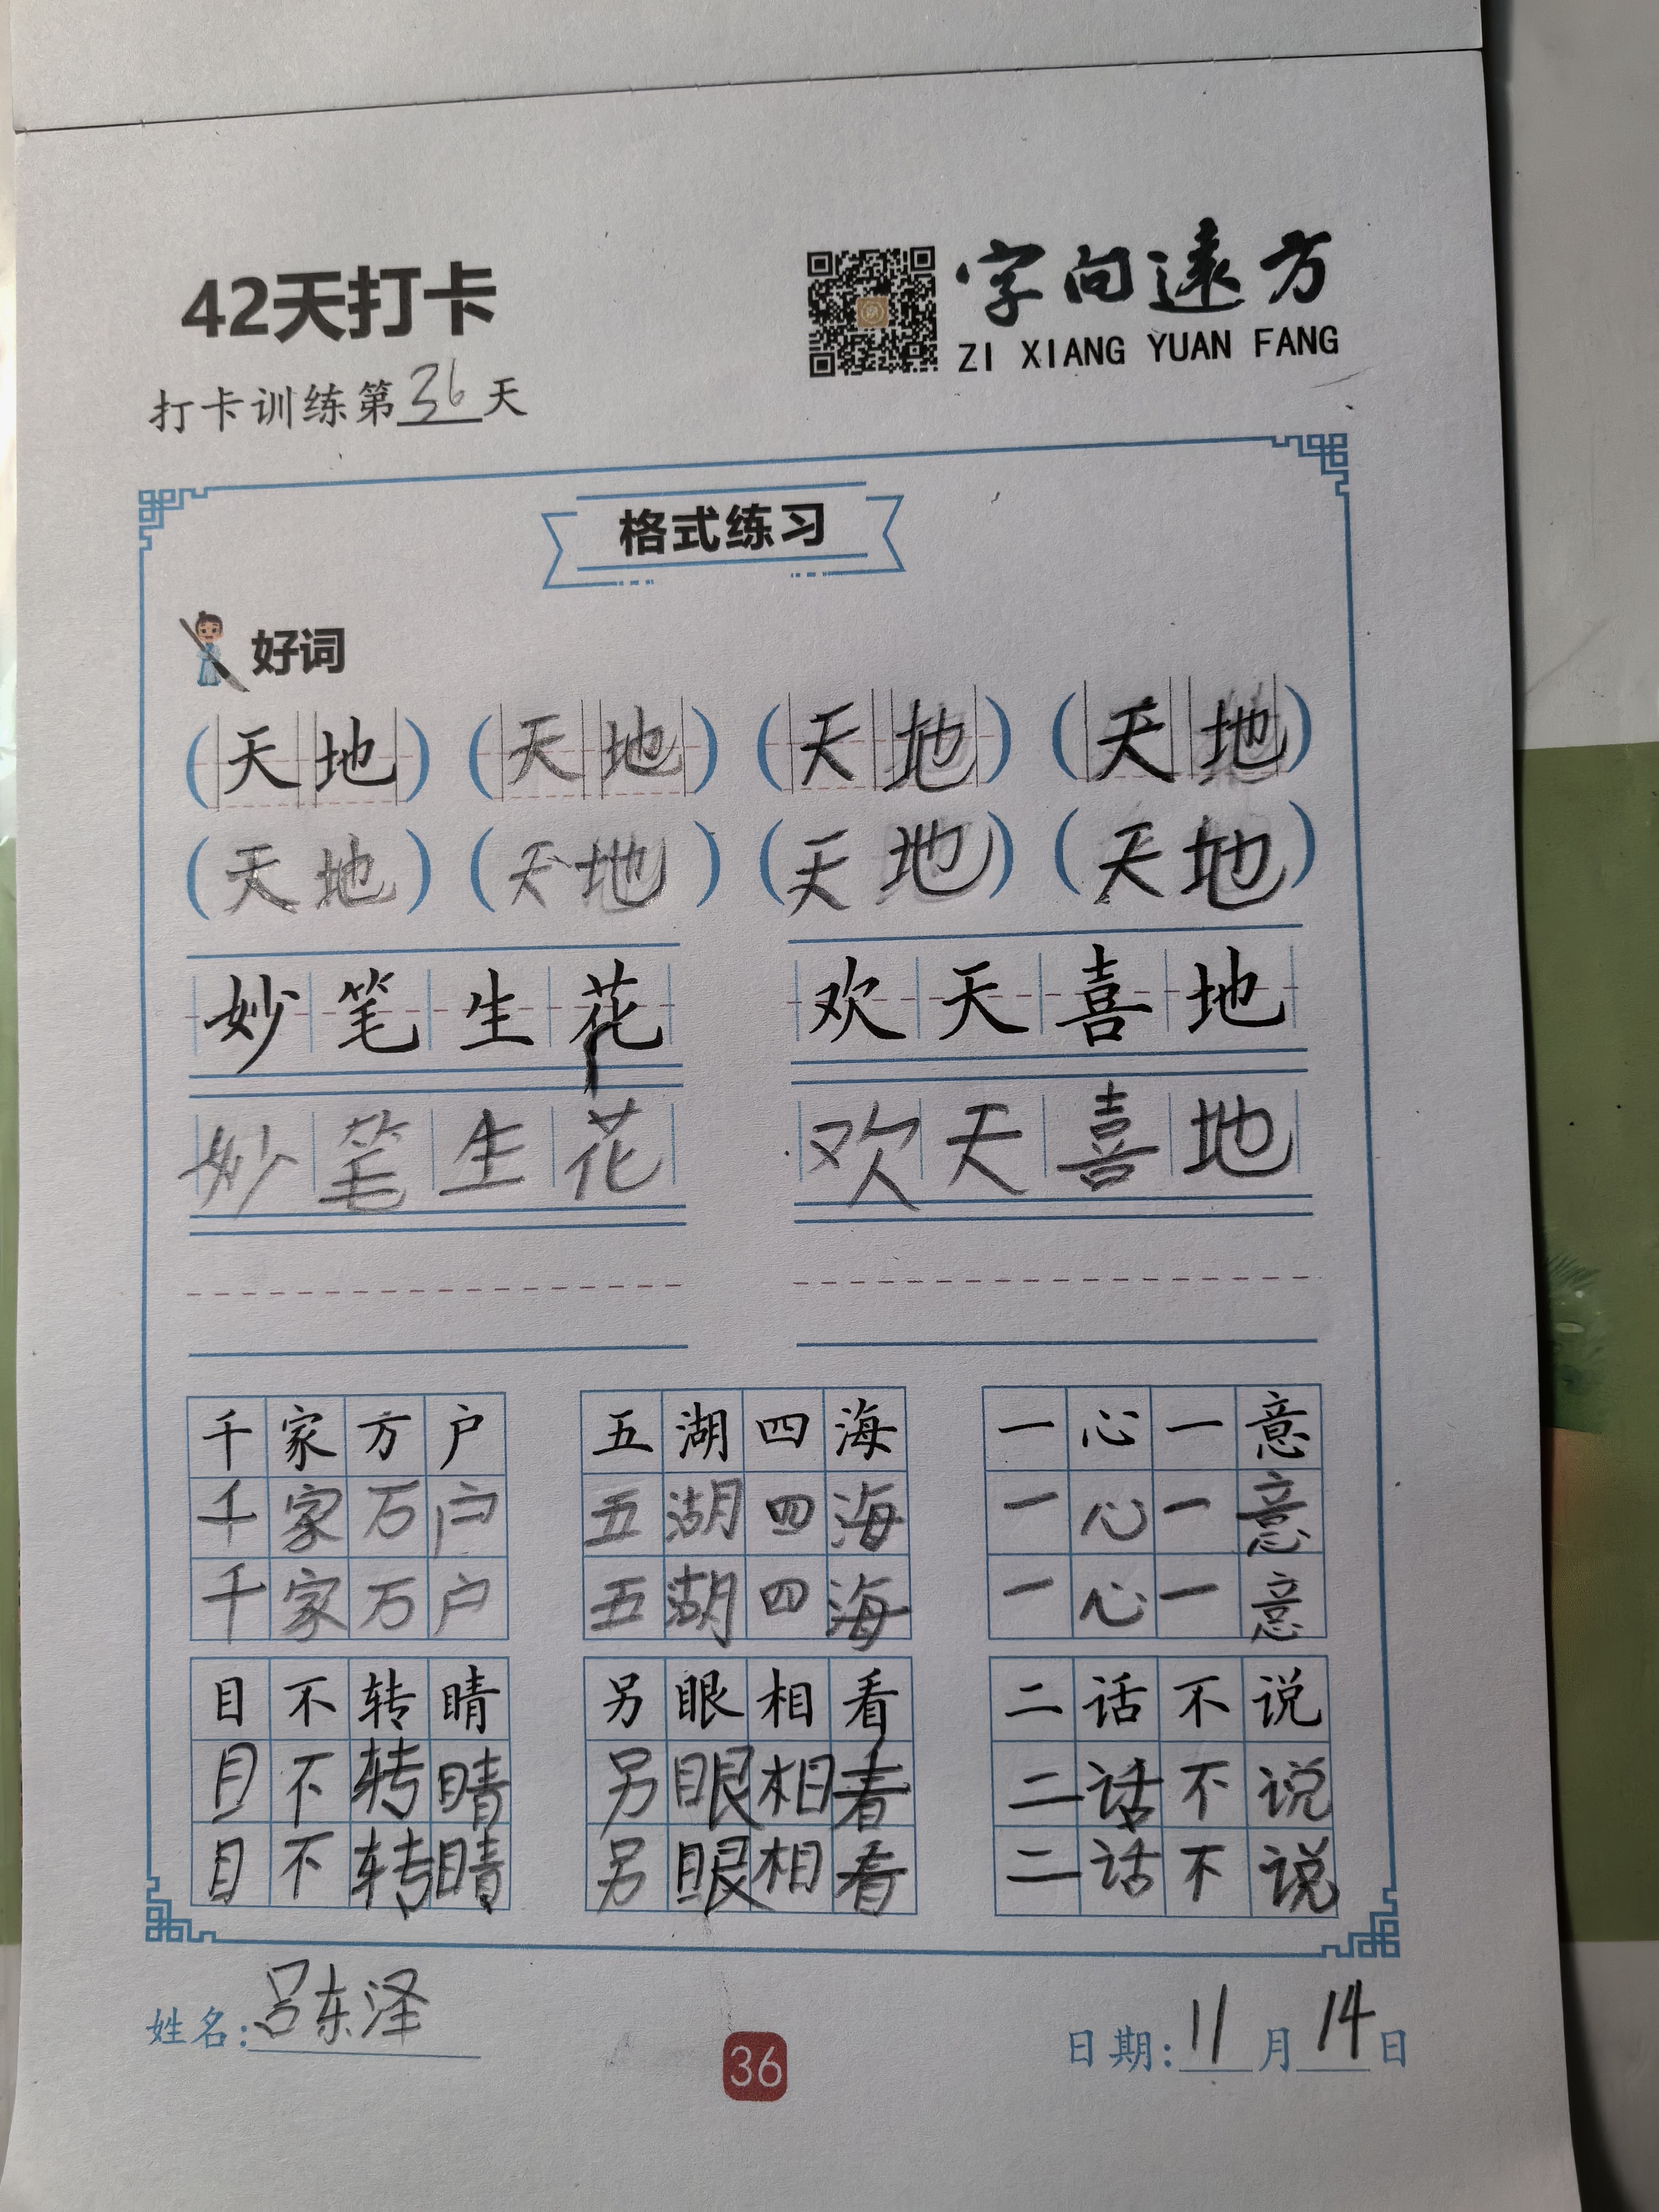 42天打卡
字向遠方
ZI XIANG YUAN FANG
打卡训练第36天
格式练习
好词
(天地) (天地) (天地) (天地)
(天地) (天地) (天地) (天地)
妙笔生花 欢天喜地
妙笔生花 欢天喜地
千家万户 五湖四海 一心一意
千家万户 五湖四海 一心一意
千家万户 五湖四海 一心一意
目不转睛 另眼相看 二话不说
目不转睛 另眼相看 二话不说
目不转睛 另眼相看 二话不说
姓名:吕东泽 日期:11月14日
36